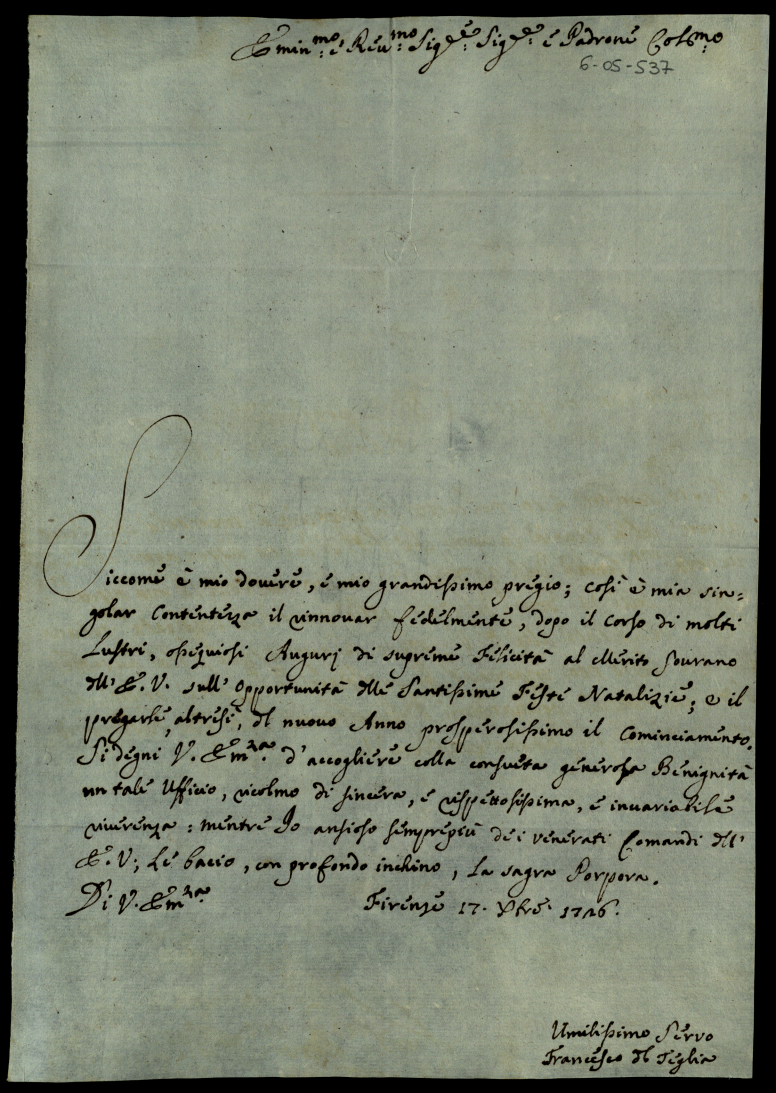 Emin.mo e Reu.mo Sig.re Sig.re e Padrone Col.mo
6-05-537
Siccome è mio douere, e mio grandissimo pregio; così è mia sin=
golar Contentezza il rinnouar fedelmente, dopo il corso di molti
Lustri, ossequiosi Augurj di supreme Felicità al Merito Sourano
dell' E. V. sull' Opportunità delle Santissime Feste Natalizie; e il
pregarle, altresì, del nuovo Anno prosperosissimo il Cominciamento.
Si degni V. Em.za d'accogliere colla consueta generosa Benignità
un tale Ufficio, ricolmo di sincera, e rispettosissima, e inuariabile
riuerenza: mentre Io ansioso sempre più dei venerati Comandi dell'
E. V; Le bacio, con profondo inchino, La sagra Porpora.
Di V. Em.za Firenze 17. Xbre. 1726.
Umilissimo Servo
Francesco del Teglia